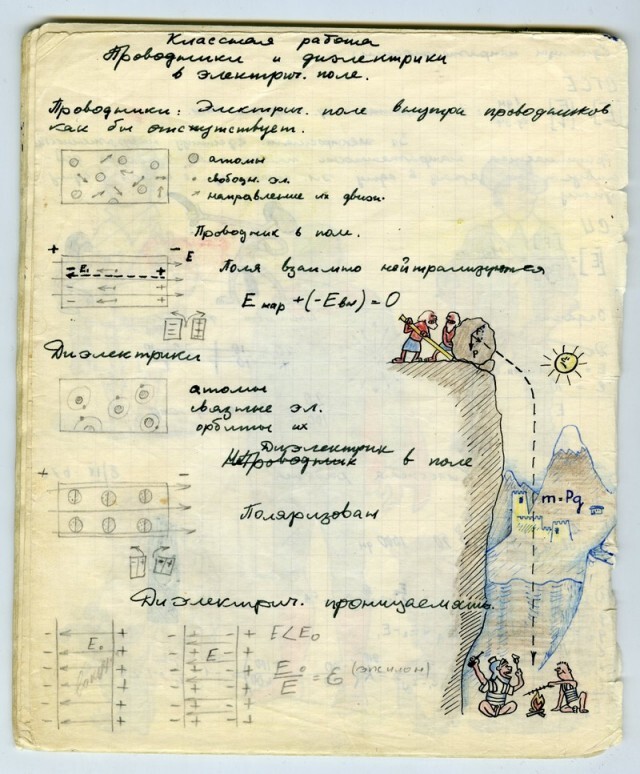 Классная работа
Проводники и диэлектрики
в электрич. поле.
Проводники: Электрич. поле внутри проводников
как бы отсутствует.
атомы
свободн. эл.
направление их движ.
Проводник в поле.
+ − E
− E₁ +
Поля взаимно нейтрализуются
E нар + (-E вн) = 0
P
Диэлектрики
атомы
связные эл.
орбиты их
Диэлектрик
Проводник в поле
+ −
Поляризован
m = Pg
Диэлектрич. проницаемость.
E₀
E
E<E₀
E₀/E = ε (эпсилон)